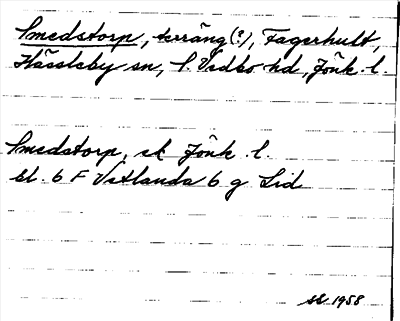 Smedstorp, terräng(?), Fagerhult,
Hässleby sn, S. Vedbo hd, Jönk. l.
Smedstorp, sk Jönk. l.
bl. 6 F Vetlanda 6 g Lid
1958